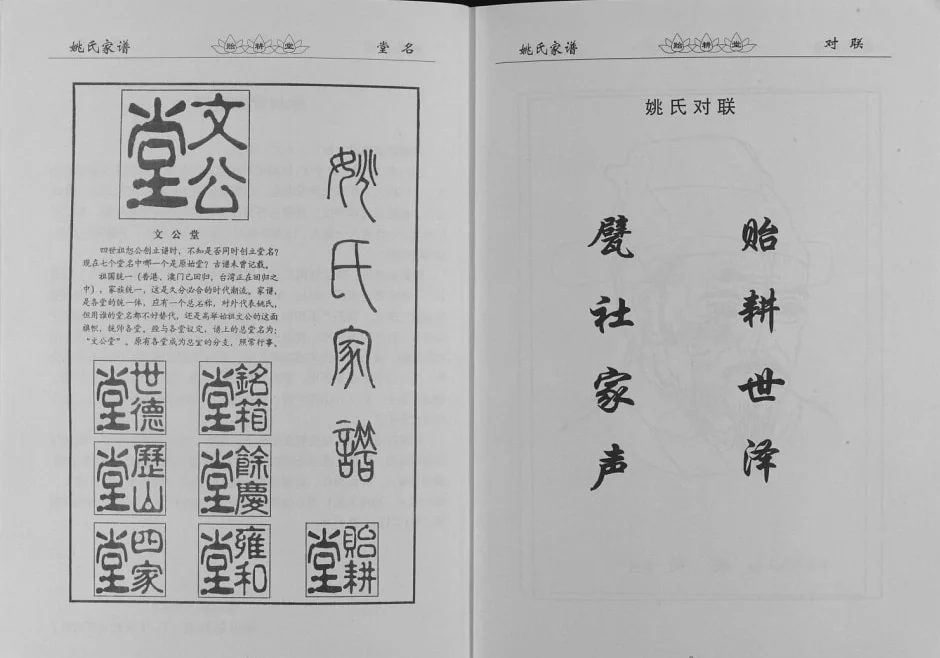 姚氏家谱
贻耕堂
堂名
文公堂
姚氏家譜
文公堂
四世祖恕公创立谱时，不知是否同时创立堂名？
现在七个堂名中哪一个是原始堂？古谱未曾记载。
祖国统一（香港、澳门已回归，台湾正在回归之
中），家族统一，这是久分必合的时代潮流。家谱，
是各堂的统一体，应有一个总名称，对外代表姚氏。
但用谁的堂名都不好替代，还是高举始祖文公的这面
旗帜，统帅各堂。经与各堂议定，谱上的总堂名为：
“文公堂”。原有各堂成为总堂的分支，照常行事。
世德堂
銘箱堂
歷山堂
餘慶堂
四家堂
雍和堂
貽耕堂
姚氏家谱
贻耕堂
对联
姚氏对联
贻耕世泽
甓社家声